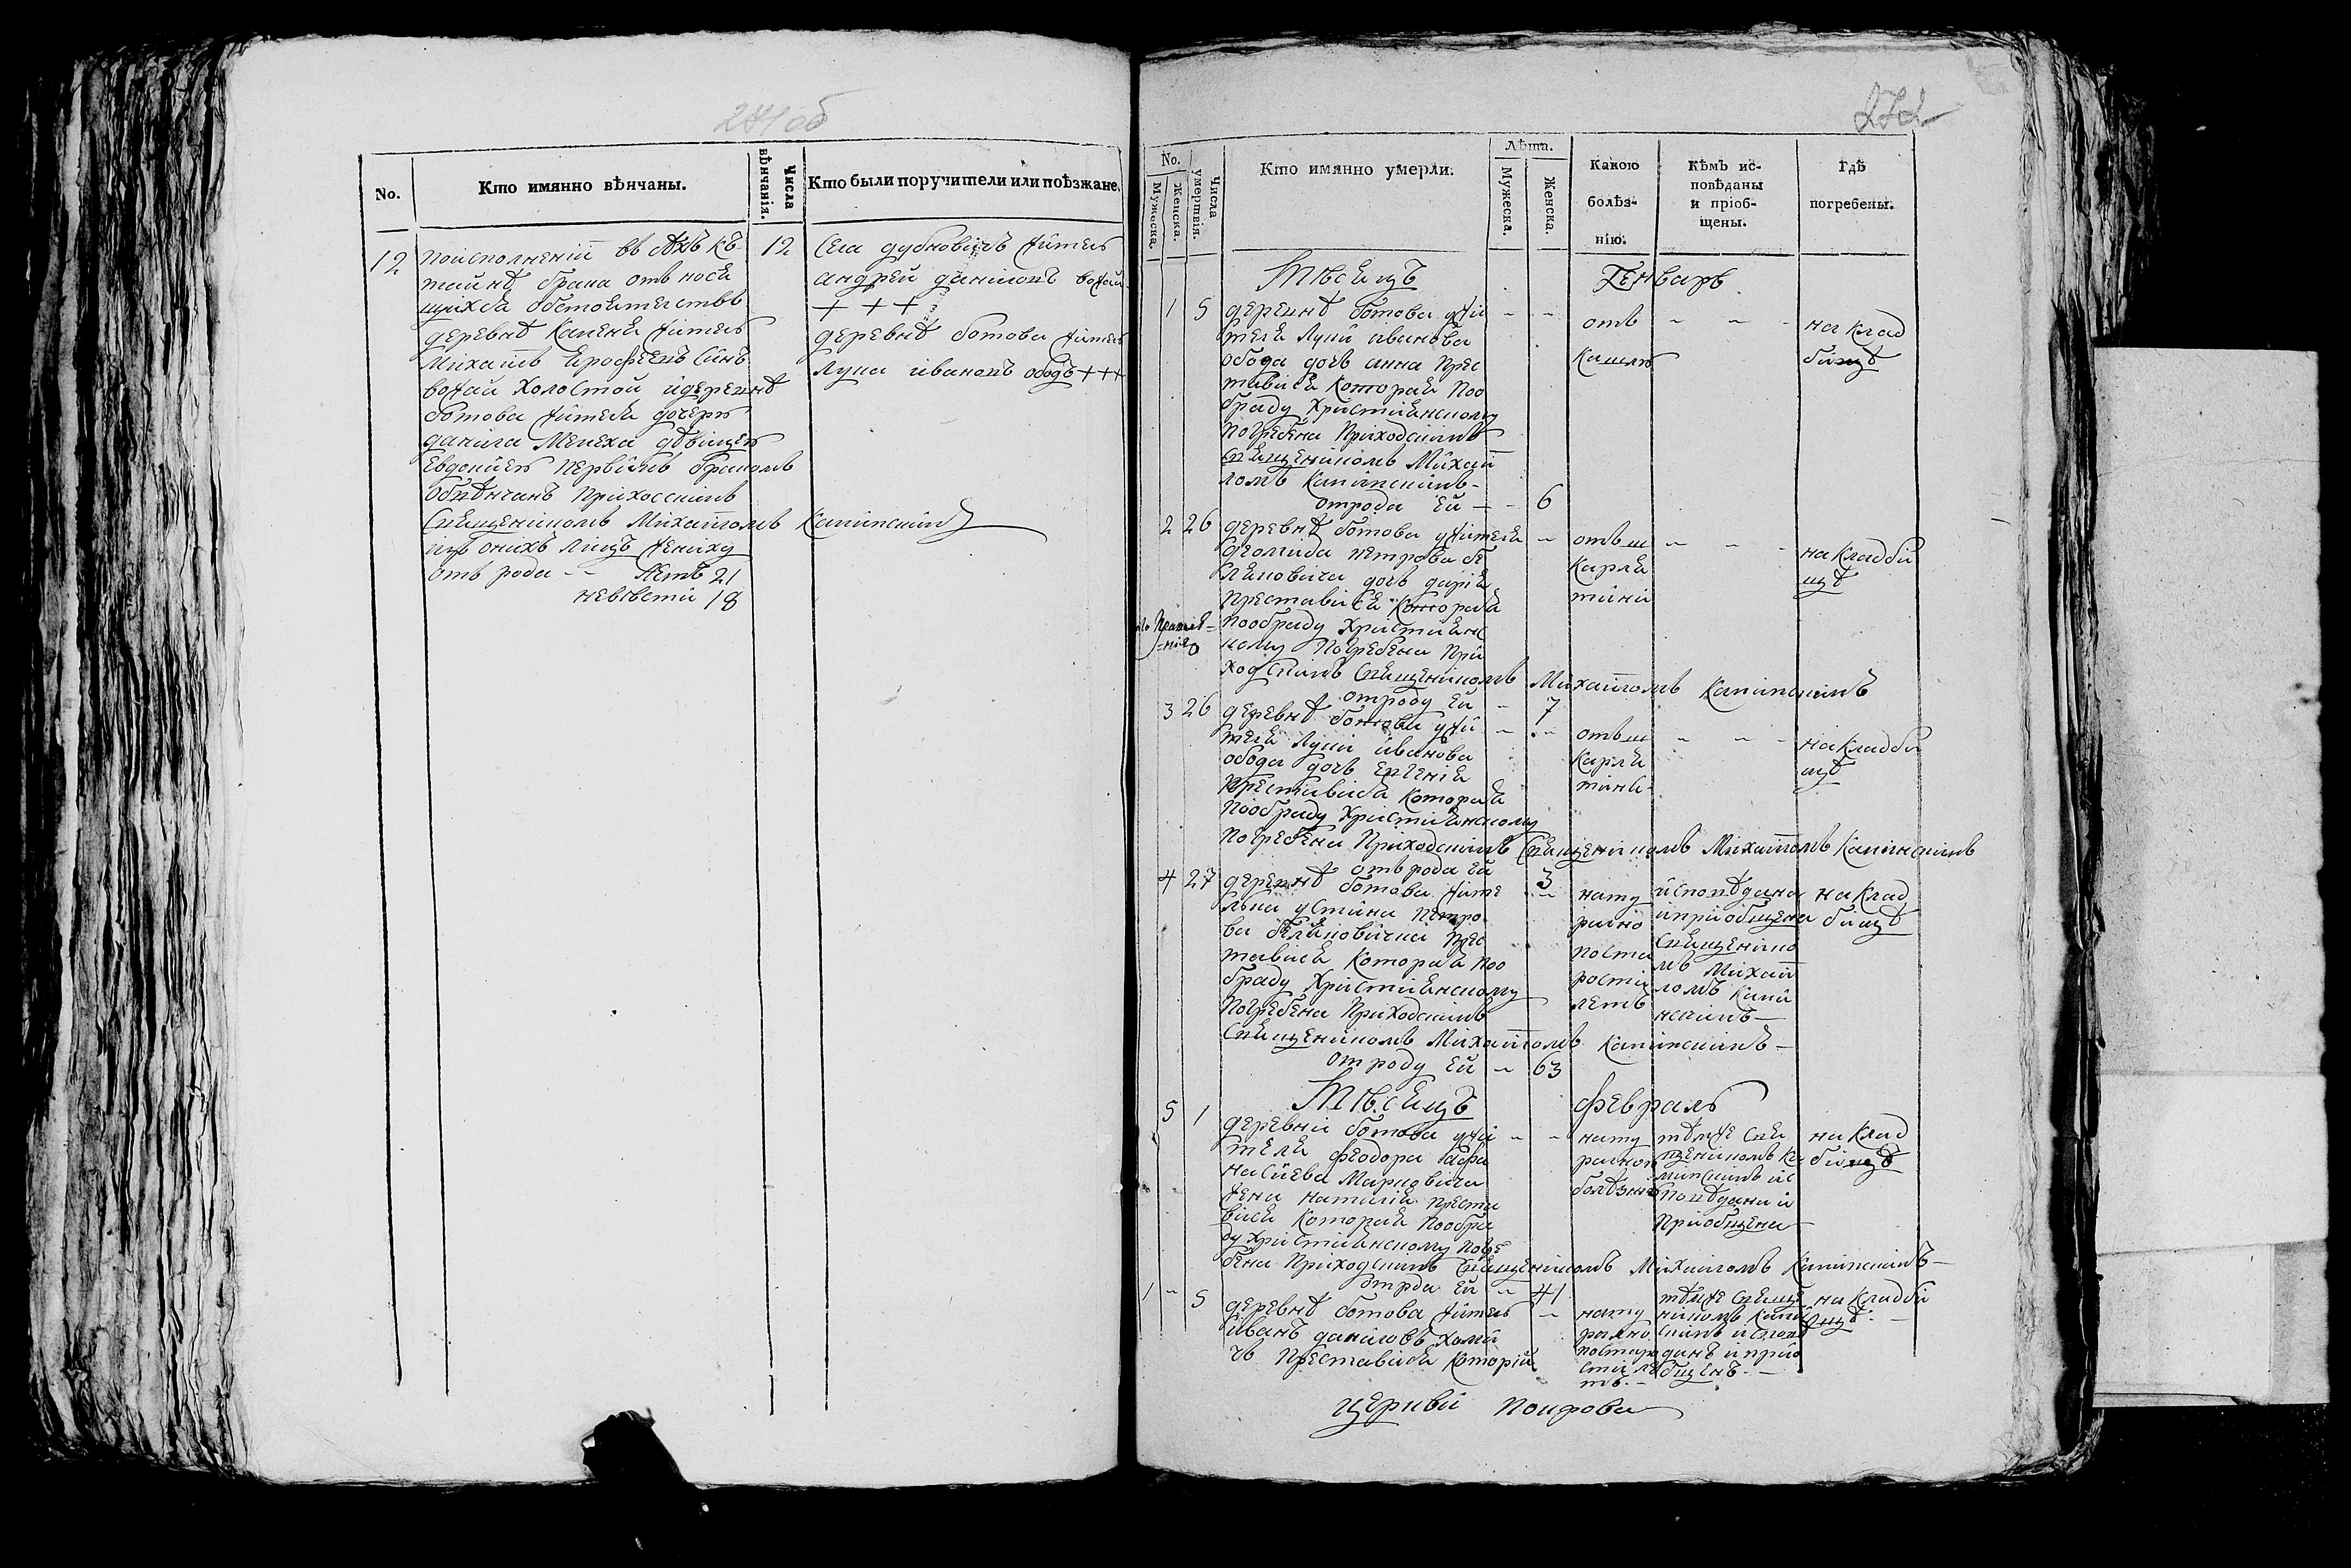 271об
No.
Кто имянно вѣнчаны.
Числа вѣнчанія.
Кто были поручители или поѣзжане.
12
поисполненіи всѣхъ къ
тайнѣ брака относя
щихся обстоятелствъ
деревнѣ Каменя жител
Михаилъ Ерофеевъ синъ
холостой идеревнѣ
ботова жителя дочерь
данила Мелеха дѣвицею
Евдокиею первимъ бракомъ
обвѣнчанъ Приходскимъ
Священикомъ Михаиломъ Капинскимъ
изъ онихъ лицъ жениху
отъ рода -- лѣтъ 21
невѣсти 18
12
Села дубновичъ жител
андрей даниловъ
+ + +
деревнѣ ботова жител
Лука ивановъ ободъ +++
272
No.
Мужеска.
Женска.
Числа умертвія.
Кто имянно умерли.
Лѣта.
Мужеска.
Женска.
Какою
болѣз-
нію.
Кѣмъ ис-
повѣданы
и пріоб-
щены.
Гдѣ
погребены.
Мѣсецъ Генваръ
1 5
деревнѣ ботова ужи
теля Луки иванова
обода дочъ анна прес
тавися Которая поо
бряду Християнскому
погребена Приходскимъ
Священикомъ Михаи
ломъ Капинскимъ-
отрода ей - - 6
отъ
Кашлю
на клад
бищѣ
2 26
деревнѣ ботова ужителя
диомида петрова бе
ляновича дочъ дария
преставися Которая
пообряду Християнс
кому погребена При
ходскимъ Священикомъ Михаиломъ Капинскимъ
отроду ей - 7
отъ ш
карля
тини
на кладби
щѣ
3 26
деревнѣ ботова ужи
теля Луки иванова
обода дочъ Евгения
Преставися Которая
пообряду Християнскому
погребена Приходскимъ Священикомъ Михаиломъ Капинскимъ
отъ рода ей 3
отъ ш
карля
тини-
на кладби
щѣ
4 27
деревнѣ ботова жите
лка устина петро
ва беляновичка прес
тавися Которая поо
бряду Християнскому
погребена Приходскимъ
Священикомъ Михаиломъ Капинскимъ-
отроду ей - 63
нату
рално
поста
рости
летъ
исповѣдана
иприобщена
Священико
мъ Михаи
ломъ Капи
нскимъ-
на клад
бищѣ
Мѣсецъ февраль
5 1
деревни ботова ужи
теля феодора афа
насиева Марковича
жена наталия преста
вися Которая пообря
ду Християнскому погре
бена Приходскимъ Священикомъ Михаиломъ Капинскимъ-
отрда ей - 41
нату
ралною
болѣзню
тѣмже Свя
щеникомъ Ка
пинскимъ ис
повѣдана и
приобщена
на клад
бищѣ
1 - 5
деревнѣ ботова жител
иванъ даниловъ хоми
чъ преставися Которій
нату
рално
постаро
сти лѣ
тъ.-
тѣмже Свяще
никомъ Капи
скимъ испов
данъ и прио
бщенъ.-
на кладби
щѣ.-
церкви Покрова